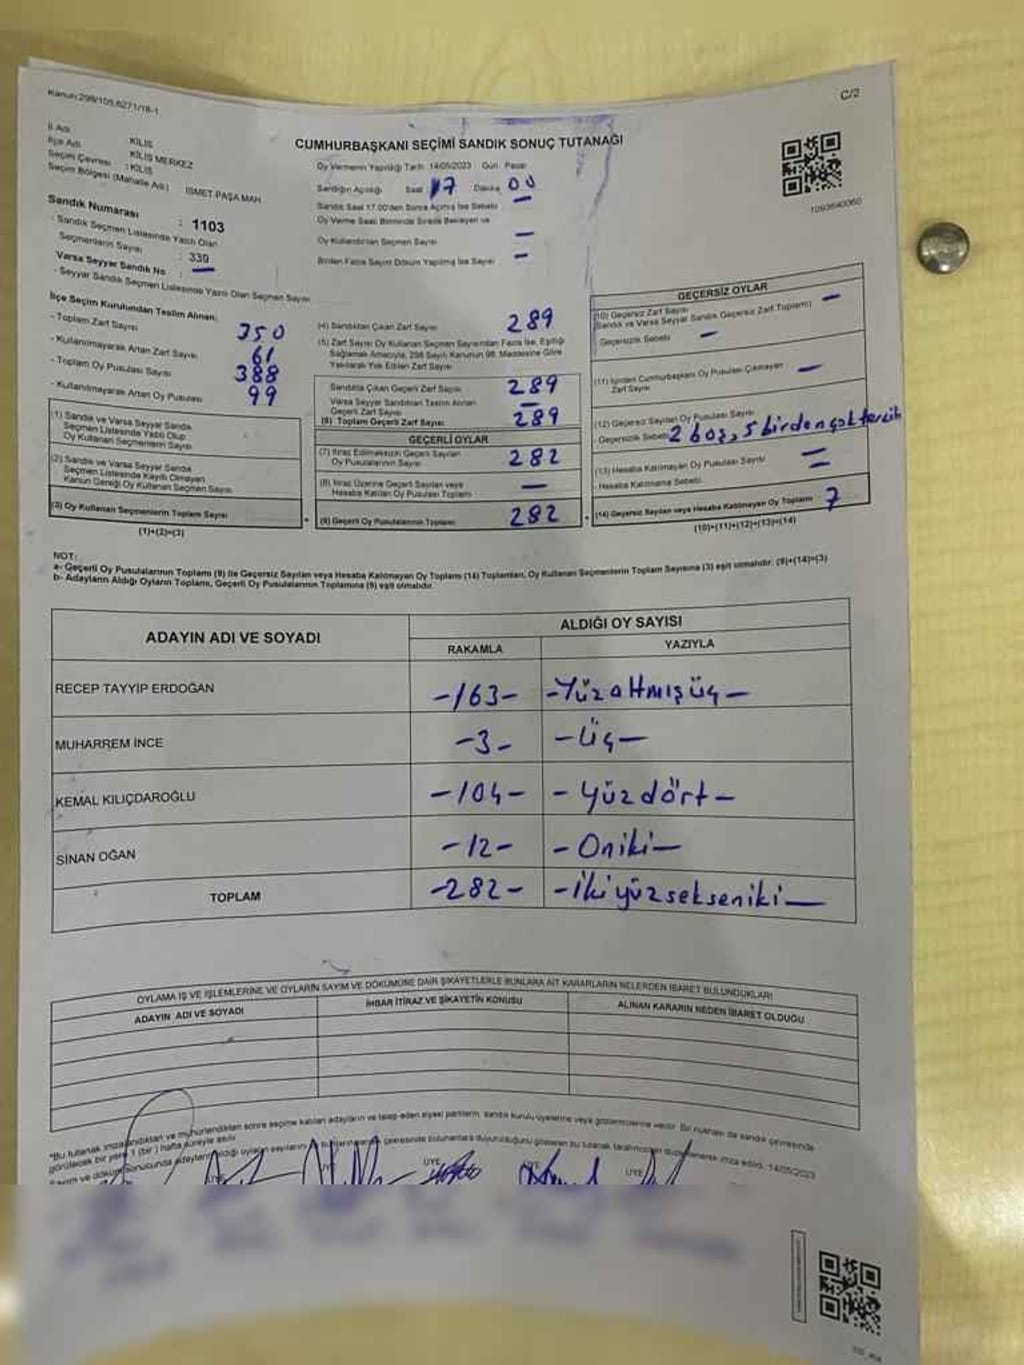 Kanun:298/105,6271/18-1
C/2
İl Adı KİLİS
İlçe Adı KİLİS MERKEZ
Seçim Çevresi : KİLİS
Seçim Bölgesi (Mahalle Adı) İSMET PAŞA MAH
CUMHURBAŞKANI SEÇİMİ SANDIK SONUÇ TUTANAĞI
Oy Vermenin Yapıldığı Tarih: 14/05/2023 Gün: Pazar
Sandığın Açıldığı Saat 17 Dakika 00
Sandık Saat 17.00'den Sonra Açılmış İse Sebebi —
Oy Verme Saati Bitiminde Sırada Bekleyen ve
Oy Kullandırılan Seçmen Sayısı —
Birden Fazla Sayım Döküm Yapılmış İse Sayısı —
1093640060
Sandık Numarası : 1103
- Sandık Seçmen Listesinde Yazılı Olan
Seçmenlerin Sayısı : 339
Varsa Seyyar Sandık No : —
- Seyyar Sandık Seçmen Listesinde Yazılı Olan Seçmen Sayısı
İlçe Seçim Kurulundan Teslim Alınan:
- Toplam Zarf Sayısı 350
- Kullanılmayarak Artan Zarf Sayısı 61
- Toplam Oy Pusulası Sayısı 388
- Kullanılmayarak Artan Oy Pusulası 99
(1) Sandık ve Varsa Seyyar Sandık
Seçmen Listesinde Yazılı Olup
Oy Kullanan Seçmenlerin Sayısı
(2) Sandık ve Varsa Seyyar Sandık
Seçmen Listesinde Kayıtlı Olmayan
Kanun Gereği Oy Kullanan Seçmen Sayısı
(3) Oy Kullanan Seçmenlerin Toplam Sayısı
(1)+(2)=(3)
(4) Sandıktan Çıkan Zarf Sayısı 289
(5) Zarf Sayısı Oy Kullanan Seçmen Sayısından Fazla İse, Eşitliği
Sağlamak Amacıyla, 298 Sayılı Kanunun 98. Maddesine Göre
Yakılarak Yok Edilen Zarf Sayısı
Sandıkta Çıkan Geçerli Zarf Sayısı 289
Varsa Seyyar Sandıktan Teslim Alınan
Geçerli Zarf Sayısı —
(6) Toplam Geçerli Zarf Sayısı 289
GEÇERLİ OYLAR
(7) İtiraz Edilmeksizin Geçerli Sayılan
Oy Pusulalarının Sayısı 282
(8) İtiraz Üzerine Geçerli Sayılan veya
Hesaba Katılan Oy Pusulası Toplamı —
(9) Geçerli Oy Pusulalarının Toplamı 282
GEÇERSİZ OYLAR
(10) Geçersiz Zarf Sayısı
(Sandık ve Varsa Seyyar Sandık Geçersiz Zarf Toplamı) —
Geçersizlik Sebebi —
(11) İçinden Cumhurbaşkanı Oy Pusulası Çıkmayan
Zarf Sayısı —
(12) Geçersiz Sayılan Oy Pusulası Sayısı
- Geçersizlik Sebebi 2 boş, 5 birden çok tercih
(13) Hesaba Katılmayan Oy Pusulası Sayısı —
- Hesaba Katılmama Sebebi —
(14) Geçersiz Sayılan veya Hesaba Katılmayan Oy Toplamı 7
(10)+(11)+(12)+(13)=(14)
NOT:
a- Geçerli Oy Pusulalarının Toplamı (9) ile Geçersiz Sayılan veya Hesaba Katılmayan Oy Toplamı (14) Toplamları, Oy Kullanan Seçmenlerin Toplam Sayısına (3) eşit olmalıdır. (9)+(14)=(3)
b- Adayların Aldığı Oyların Toplamı, Geçerli Oy Pusulalarının Toplamına (9) eşit olmalıdır.
ADAYIN ADI VE SOYADI
ALDIĞI OY SAYISI
RAKAMLA YAZIYLA
RECEP TAYYİP ERDOĞAN -163- -Yüzaltmışüç-
MUHARREM İNCE -3- -Üç-
KEMAL KILIÇDAROĞLU -104- -Yüzdört-
SİNAN OĞAN -12- -Oniki-
TOPLAM -282- -ikiyüzsekseniki-
OYLAMA İŞ VE İŞLEMLERİNE VE OYLARIN SAYIM VE DÖKÜMÜNE DAİR ŞİKAYETLERLE BUNLARA AİT KARARLARIN NELERDEN İBARET BULUNDUKLARI
ADAYIN ADI VE SOYADI
İHBAR İTİRAZ VE ŞİKAYETİN KONUSU
ALINAN KARARIN NEDEN İBARET OLDUĞU
"Bu tutanak imzalandıktan ve mühürlendikten sonra seçime katılan adayların ve talep eden siyasi partilerin sandık kurulu üyelerine veya gözlemcilerine verilir. Bir nüshası da sandık çevresinde
görülecek bir yere 1 (bir) hafta süreyle asılır.
ÜYE ÜYE ÜYE ÜYE